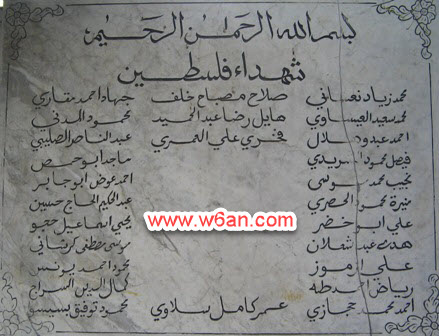 بسم الله الرحمن الرحيم
شهداء فلسطين
محمد زياد نعساني صلاح مصباح خلف جهاد احمد مقاري
محمد سعيد العيساوي هايل رضا عبد الحميد محمود المدني
احمد عبد وهلال فخري علي العمري عبد الناصر الصليبي
فيصل محمود ماجد ابو حمص
نجيب محمد موسى احمد عوض ابو جابر
منيرة محمود الحصري عبد الكريم الحاج حسين
علي ابو خضر يحيى اسماعيل حجو
شعلان موسى مصطفى
www.w6an.com
علي محمود احمد يونس
رياض احمد طه كمال الدين السراج
احمد محمد حجازي عمر كامل سلاوي محمود توفيق بسيسو